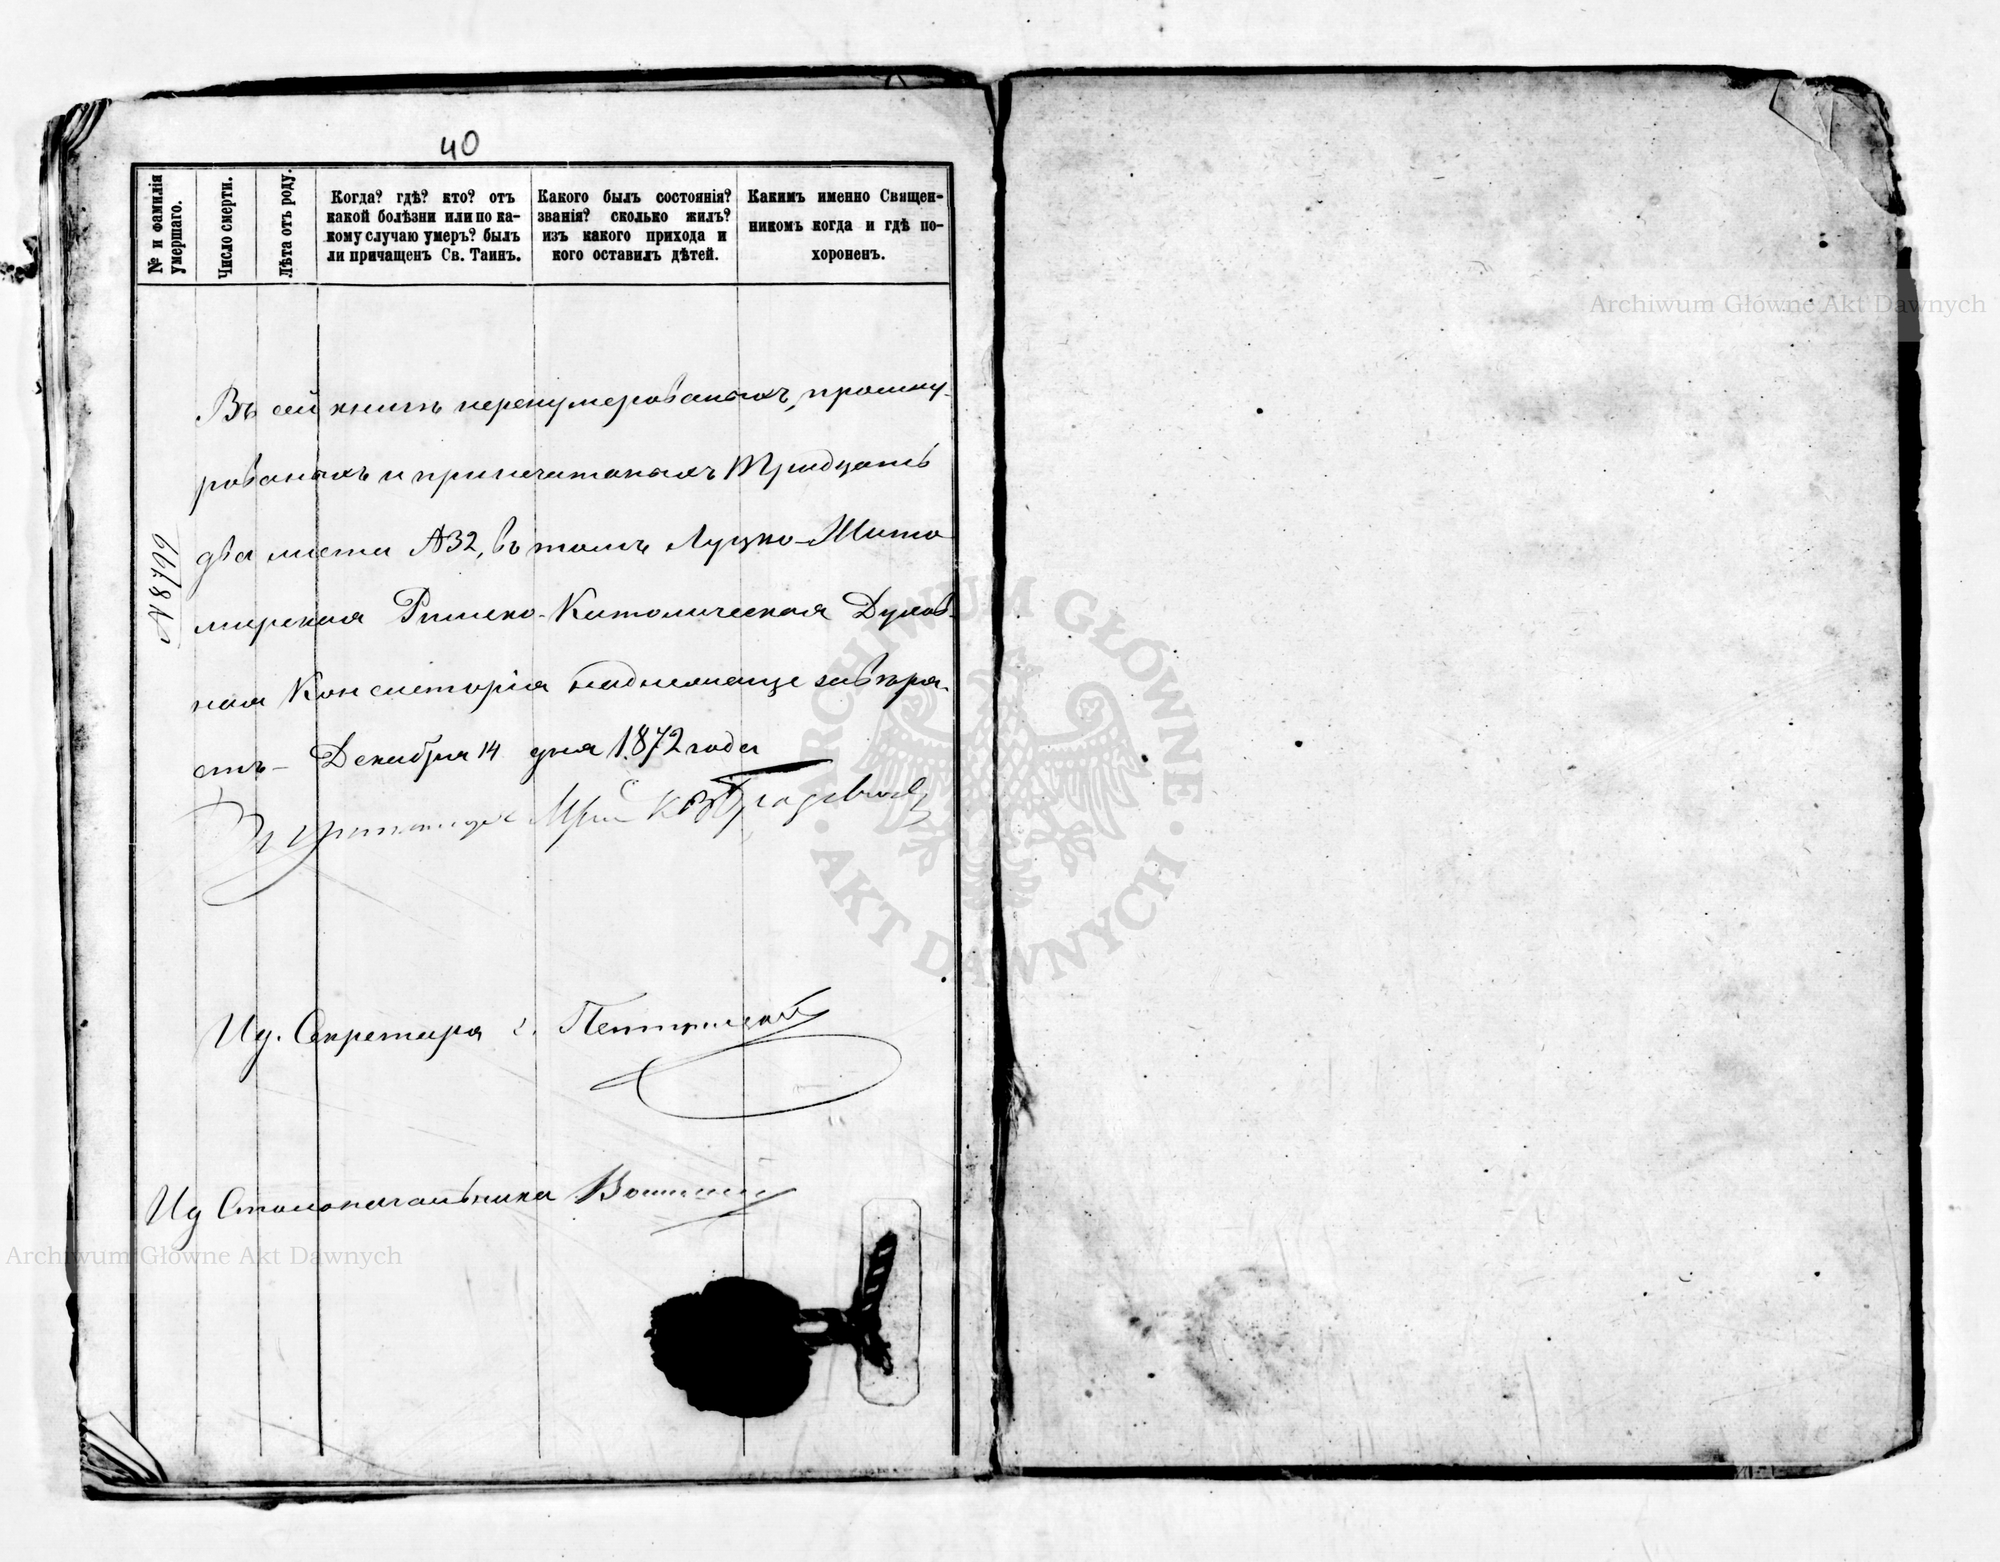 40
№ и фамилія умершаго.
Число смерти.
Лѣта отъ роду.
Когда? гдѣ? кто? отъ
какой болѣзни или по ка-
кому случаю умеръ? былъ
ли причащенъ Св. Таинъ.
Какого былъ состоянія?
званія? сколько жилъ?
изъ какого прихода и
кого оставилъ дѣтей.
Какимъ именно Священ-
никомъ когда и гдѣ по-
хороненъ.
Въ сей книгѣ перенумерованыхъ, прошну-
рованыхъ и припечатаныхъ Тридцать
два листа №32, въ томъ Луцко-Жито
мирская Римско-Католическая Духов-
ная Консисторія надлежаще завѣря-
етъ – Декабря 14 дня 1872 года
№ 8799
Ид. Секретаря
Ид Столоначальника
Archiwum Główne Akt Dawnych
Archiwum Główne Akt Dawnych
ARCHIWUM GŁÓWNE
· AKT DAWNYCH ·